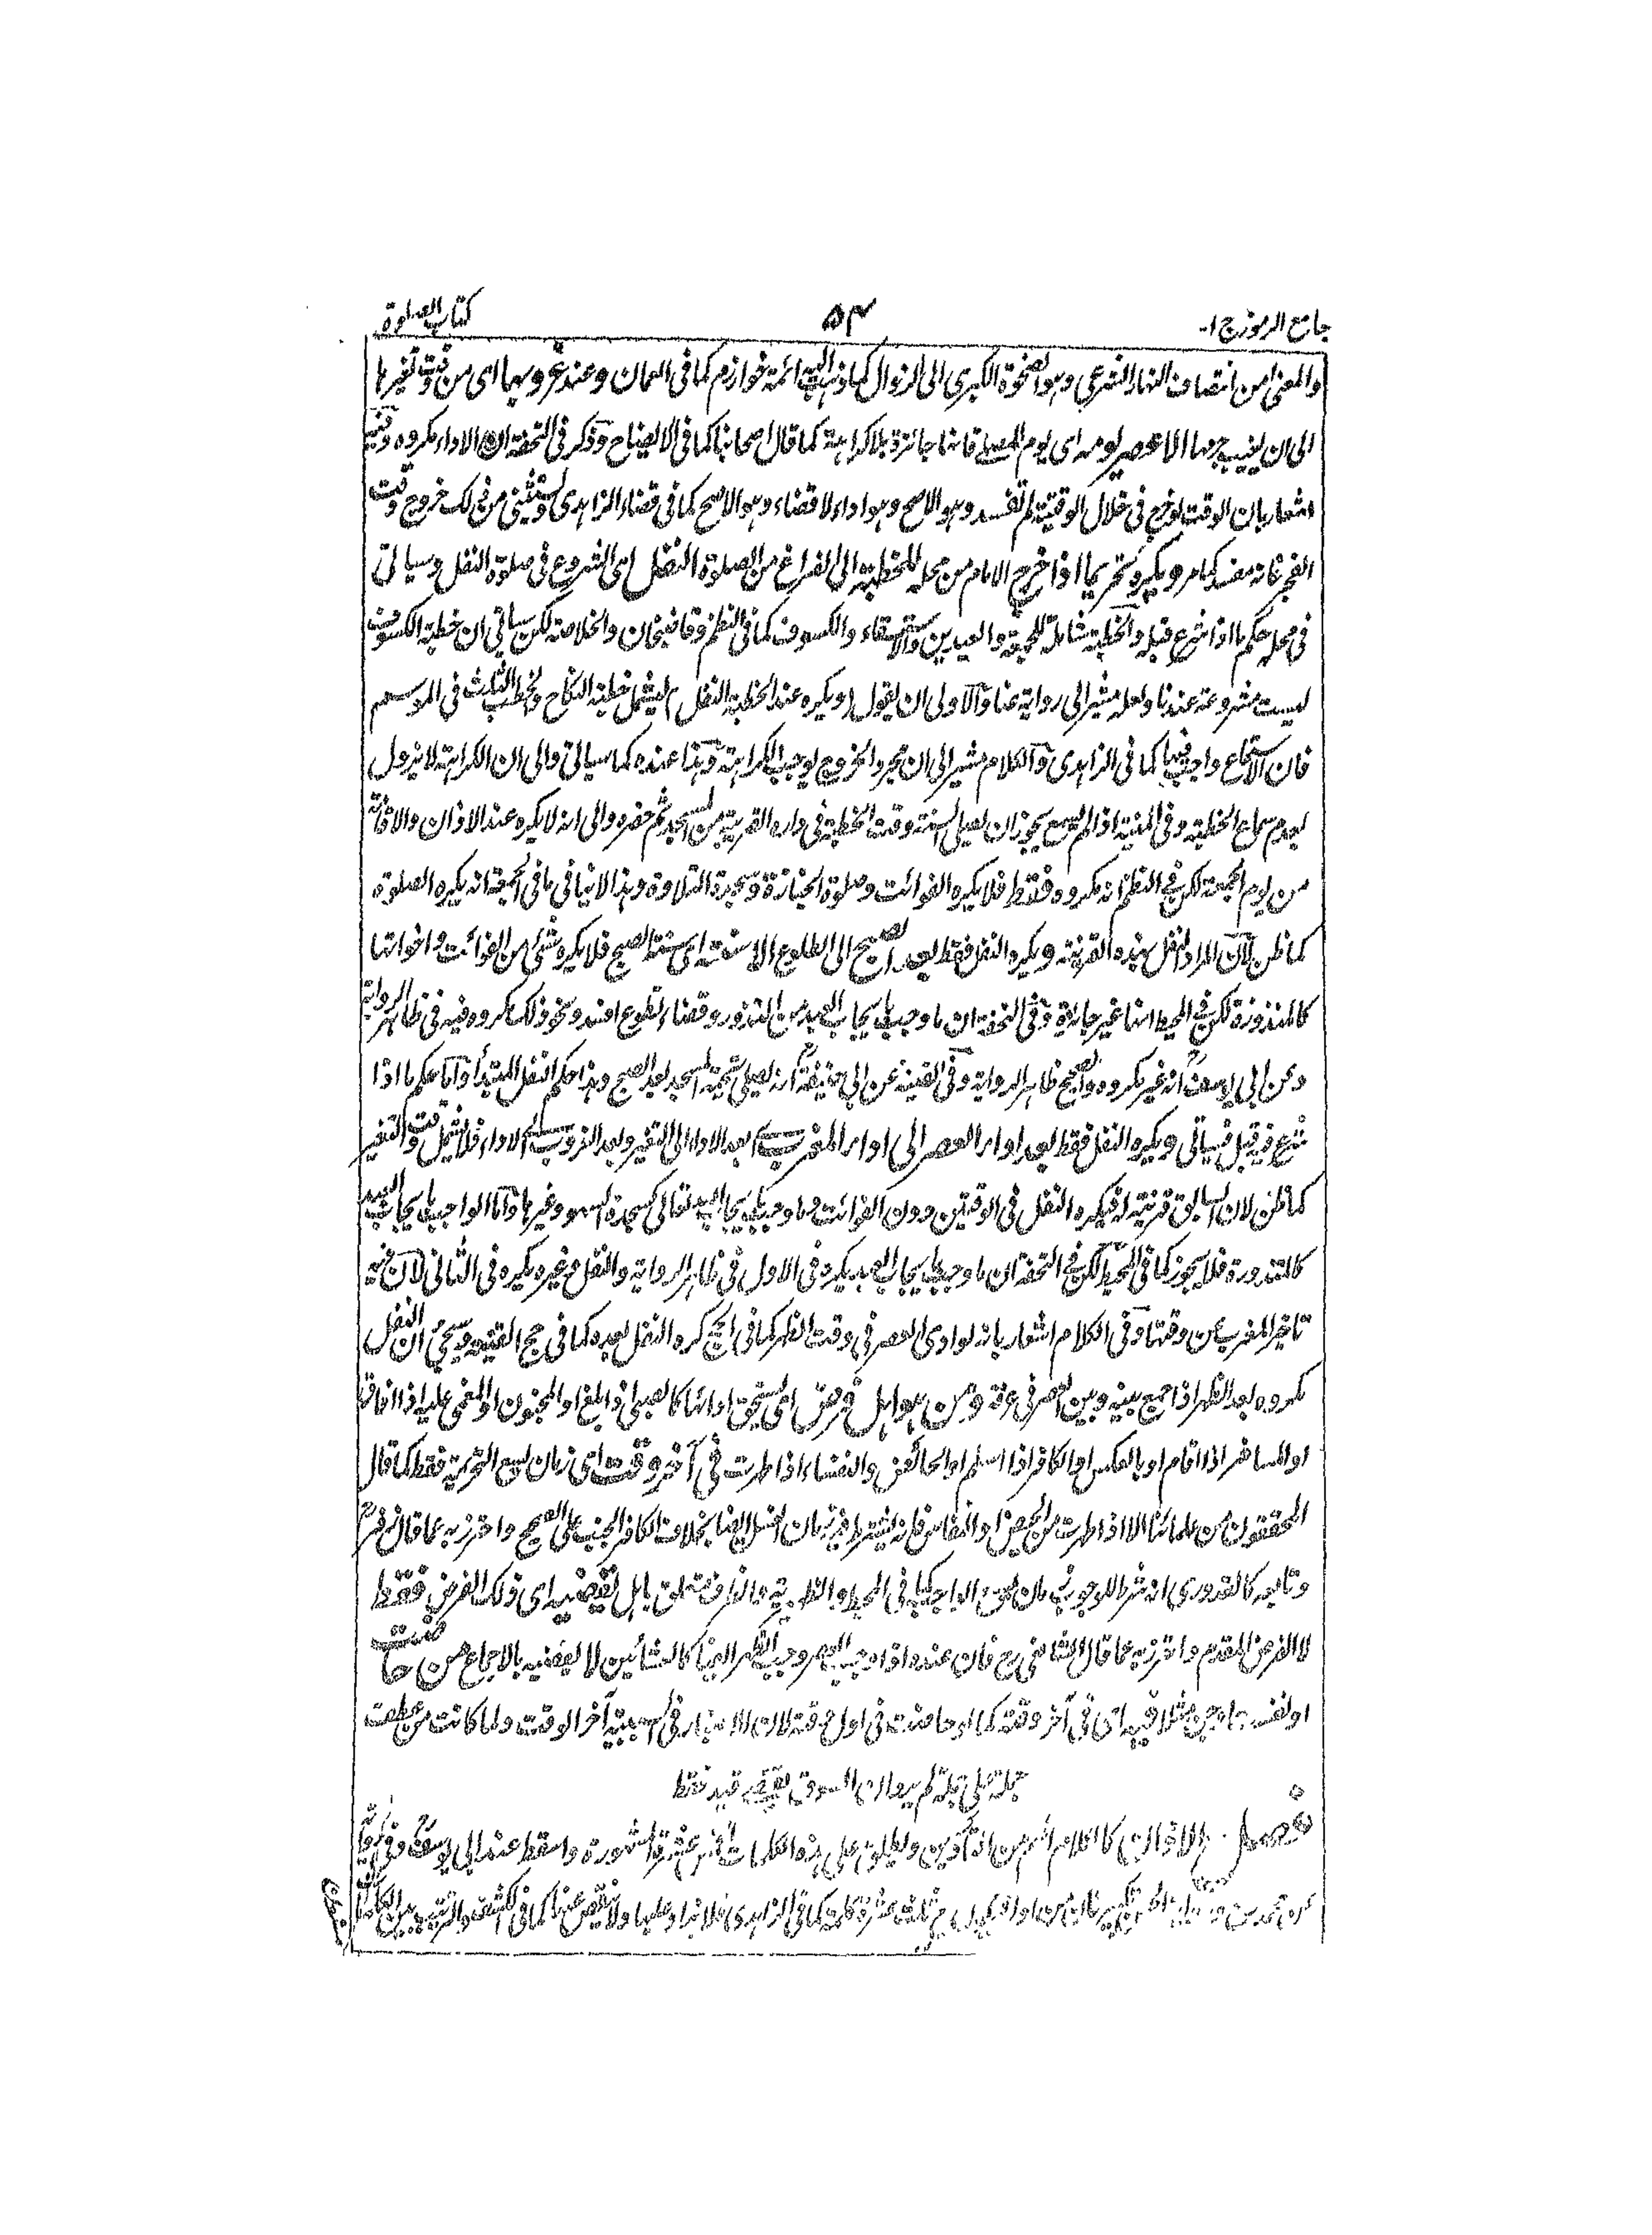 جامع الرموز ج ۱- ۵۴ كتاب الصلوة
والمعنى من انتصاف النهار الشرعي وهو الضحوة الكبرى الى الزوال كما ذهب اليه ائمة خوارزم كما في العمان وعند غروبها اى من وقت تغيرها
الى ان يغيب جرمها الا عصر يومه اى يوم المصلے فانها جائزة بلا كراهية كما قال اصحابنا كما في الايضاح وذكر في التحفة ان الاداء مكروه وفيه
اشعار بان الوقت لو خرج في خلال الوقتية لم تفسد وهو الاصح وهو اداء لا قضاء وهو الاصح كما في قضاء الزاهدى ويستثنى من ذلك خروج وقت
الفجر فانه مفسد كما مر ويكره تحريما اذا خرج الامام من محله للخطبة الى الفراغ من الصلوة النفل اى الشروع في صلوة النفل وسياتي
في محله حكم ما اذا شرع قبله والخطبة شاملة للجمعة والعيدين والاستسقاء والكسوف كما في النظم وقاضيخان والخلاصة لكن سياتي ان خطبة الكسوف
ليست مشروعة عندنا ولعله مشير الى رواية عنا والاولى ان يقول (ويكره عند الخطبة النفل) ليشمل خطبة النكاح والخطب الثلث في الموسم
فان الاستماع واجب فيها كما في الزاهدى والكلام مشير الى ان مجرد الخروج يوجب الكراهة وهذا عنده كما سياتي والى ان الكراهة لا تزول
بعدم سماع الخطبة وفي المنية اذا لم يسمع يجوز ان يصلى السنة وقت الخطبة في داره القريبة من المسجد ثم حضره والى انه لا يكره عند الاذان والاقامة
من يوم الجمعة لكن في النظم انه مكروه فقط فلا يكره الفوائت وصلوة الجنازة وسجدة التلاوة وهذا لا ينافي ما في الجمعة انه يكره الصلوة
كما ظن لان المراد النفل بهذه القرينة ويكره النفل فقط بعد الصبح الى الطلوع الا سنته اى سنة الصبح فلا يكره شئ من الفوائت واخواتها
كالمنذورة لكن في المحيط انها غير جائزة وفي التحفة ان ما وجب بايجاب العبد من المنذور وقضاء تطوع افسد ونحو ذلك مكروه فيه في ظاهر الرواية
وعن ابي يوسف انه غير مكروه والصحيح ظاهر الرواية وفي القنية عن ابي حنيفة انه يصلى تحية المسجد بعد الصبح وهذا حكم النفل المبتدأ واما حكم ما اذا
شرع فيه قبل فسياتي ويكره النفل فقط بعد اداء العصر الى اداء المغرب اى بعد الاداء الى التغير وبعد الغروب الى الاداء فلا يشمل وقت التغير
كما ظن لان السابق قرينة له فيكره النفل في الوقتين دون الفوائت وما وجب بايجاب الله تعالى كسجدة السهو وغيرها واما الواجب بايجاب العبد
كالمنذورة فلا يجوز كما في المحيط لكن في التحفة ان ما وجب بايجاب العبد يكره في الاول في ظاهر الرواية والنفل مع غيره يكره في الثاني لان فيه
تاخير المغرب عن وقتها وفي الكلام اشعار بانه لو ادى العصر في وقت الظهر كما في الحج كره النفل بعده كما في حج القنية ويجئ ان النفل
مكروه بعد الظهر اذا جمع بينه وبين العصر في عرفة ومن هو اهل فرض اى مستحق ادائها كالصبى اذا بلغ او المجنون او المغمى عليه اذا افاقا
او المسافر اذا اقام او بالعكس او الكافر اذا اسلم او الحائض والنفساء اذا طهرت في آخر وقت اى زمان يسع التحريمة فقط كما قال
المحققون من علمائنا الا اذا طهرت من الحيض او النفاس فانه يشترط فيه زمان الغسل ايضا بخلاف الكافر الجنب على الصحيح واحترز به عما قال زفر
وتابعه كالقدورى انه شرط للوجوب زمان يسع الواجب كما في المحيط والظرف متعلق باهل يقضيه اى ذلك الفرض فقط
لا الفرض المقدم واحترز به عما قال الشافعى رح فان عنده اذا وجب العصر وجب الظهر ايضا كالعشائين لا يقضيه بالاجماع من حاضت
او نفست فيه اى في آخر وقته كما لو حاضت في اول وقته لان الاعتبار في السببية آخر الوقت ولما كانت من عطف
جملة على جملة لم يبعد ان السوق يقتضى قيد فقط
فصل. الاذان كالكلام اسم من التأذين ويطلق على هذه الكلمات الخمس عشرة المشهورة واسقط عند ابي يوسف وفي رواية
ثلث عشرة كلمة كما في الزاهدى فلا يزاد عليها ولا ينقص عنها كما في الكشف والترتيب بين الكلمات